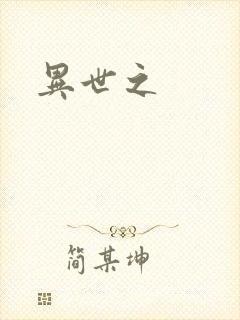 異世之
简某坤